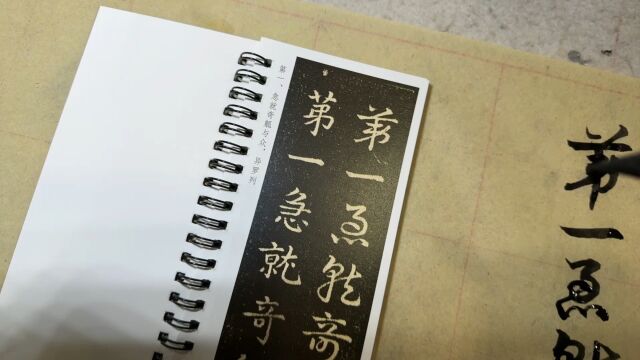 第一、急就奇觚与众，异罗列
第一急就奇
第一急就奇
第一急就